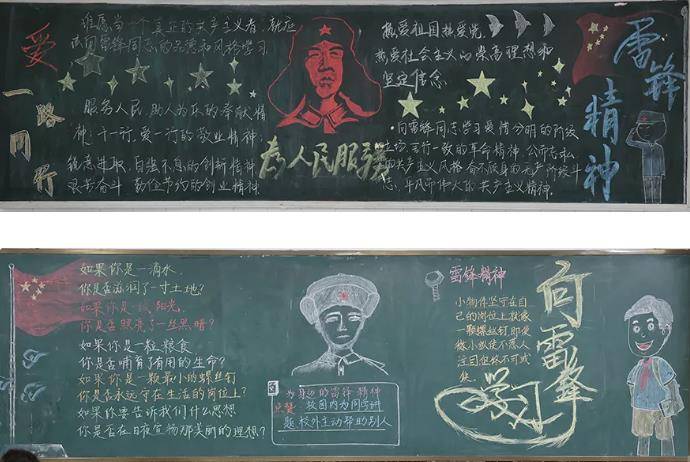 爱
一路
同行
谁愿当一个真正的共产主义者,就应
该向雷锋同志的品德和风格学习
服务人民,助人为乐的奉献精
神;干一行,爱一行的敬业精神;
锐意进取,自强不息的创新精神
艰苦奋斗 勤俭节约的创业精神
为人民服务
热爱祖国热爱党
热爱社会主义的崇高理想和
坚定信念
向雷锋同志学习爱憎分明的阶级
立场、言行一致的革命精神、公而忘私
的共产主义风格 奋不顾身的无产阶级斗
志,
共产主义精神.
雷锋
精神
如果你是一滴水,
你是否滋润了一寸土地?
如果你是一线阳光,
你是否照亮了一些黑暗?
如果你是一粒粮食
你是否哺育了有用的生命?
如果你是一颗最小的螺丝钉
你是否永远守在生活的岗位上?
如果你要告诉我们什么思想
你是否在日夜宣扬那美丽的理想?
为身边的雷锋精神
点赞
校园内为同学讲
题 校外主动帮助别人
雷锋精神
小物件坚守在自
己的岗位上就像
一颗螺丝钉即使
微小纵使不惹人
注目但终不可或
缺.
向
雷
锋
学习